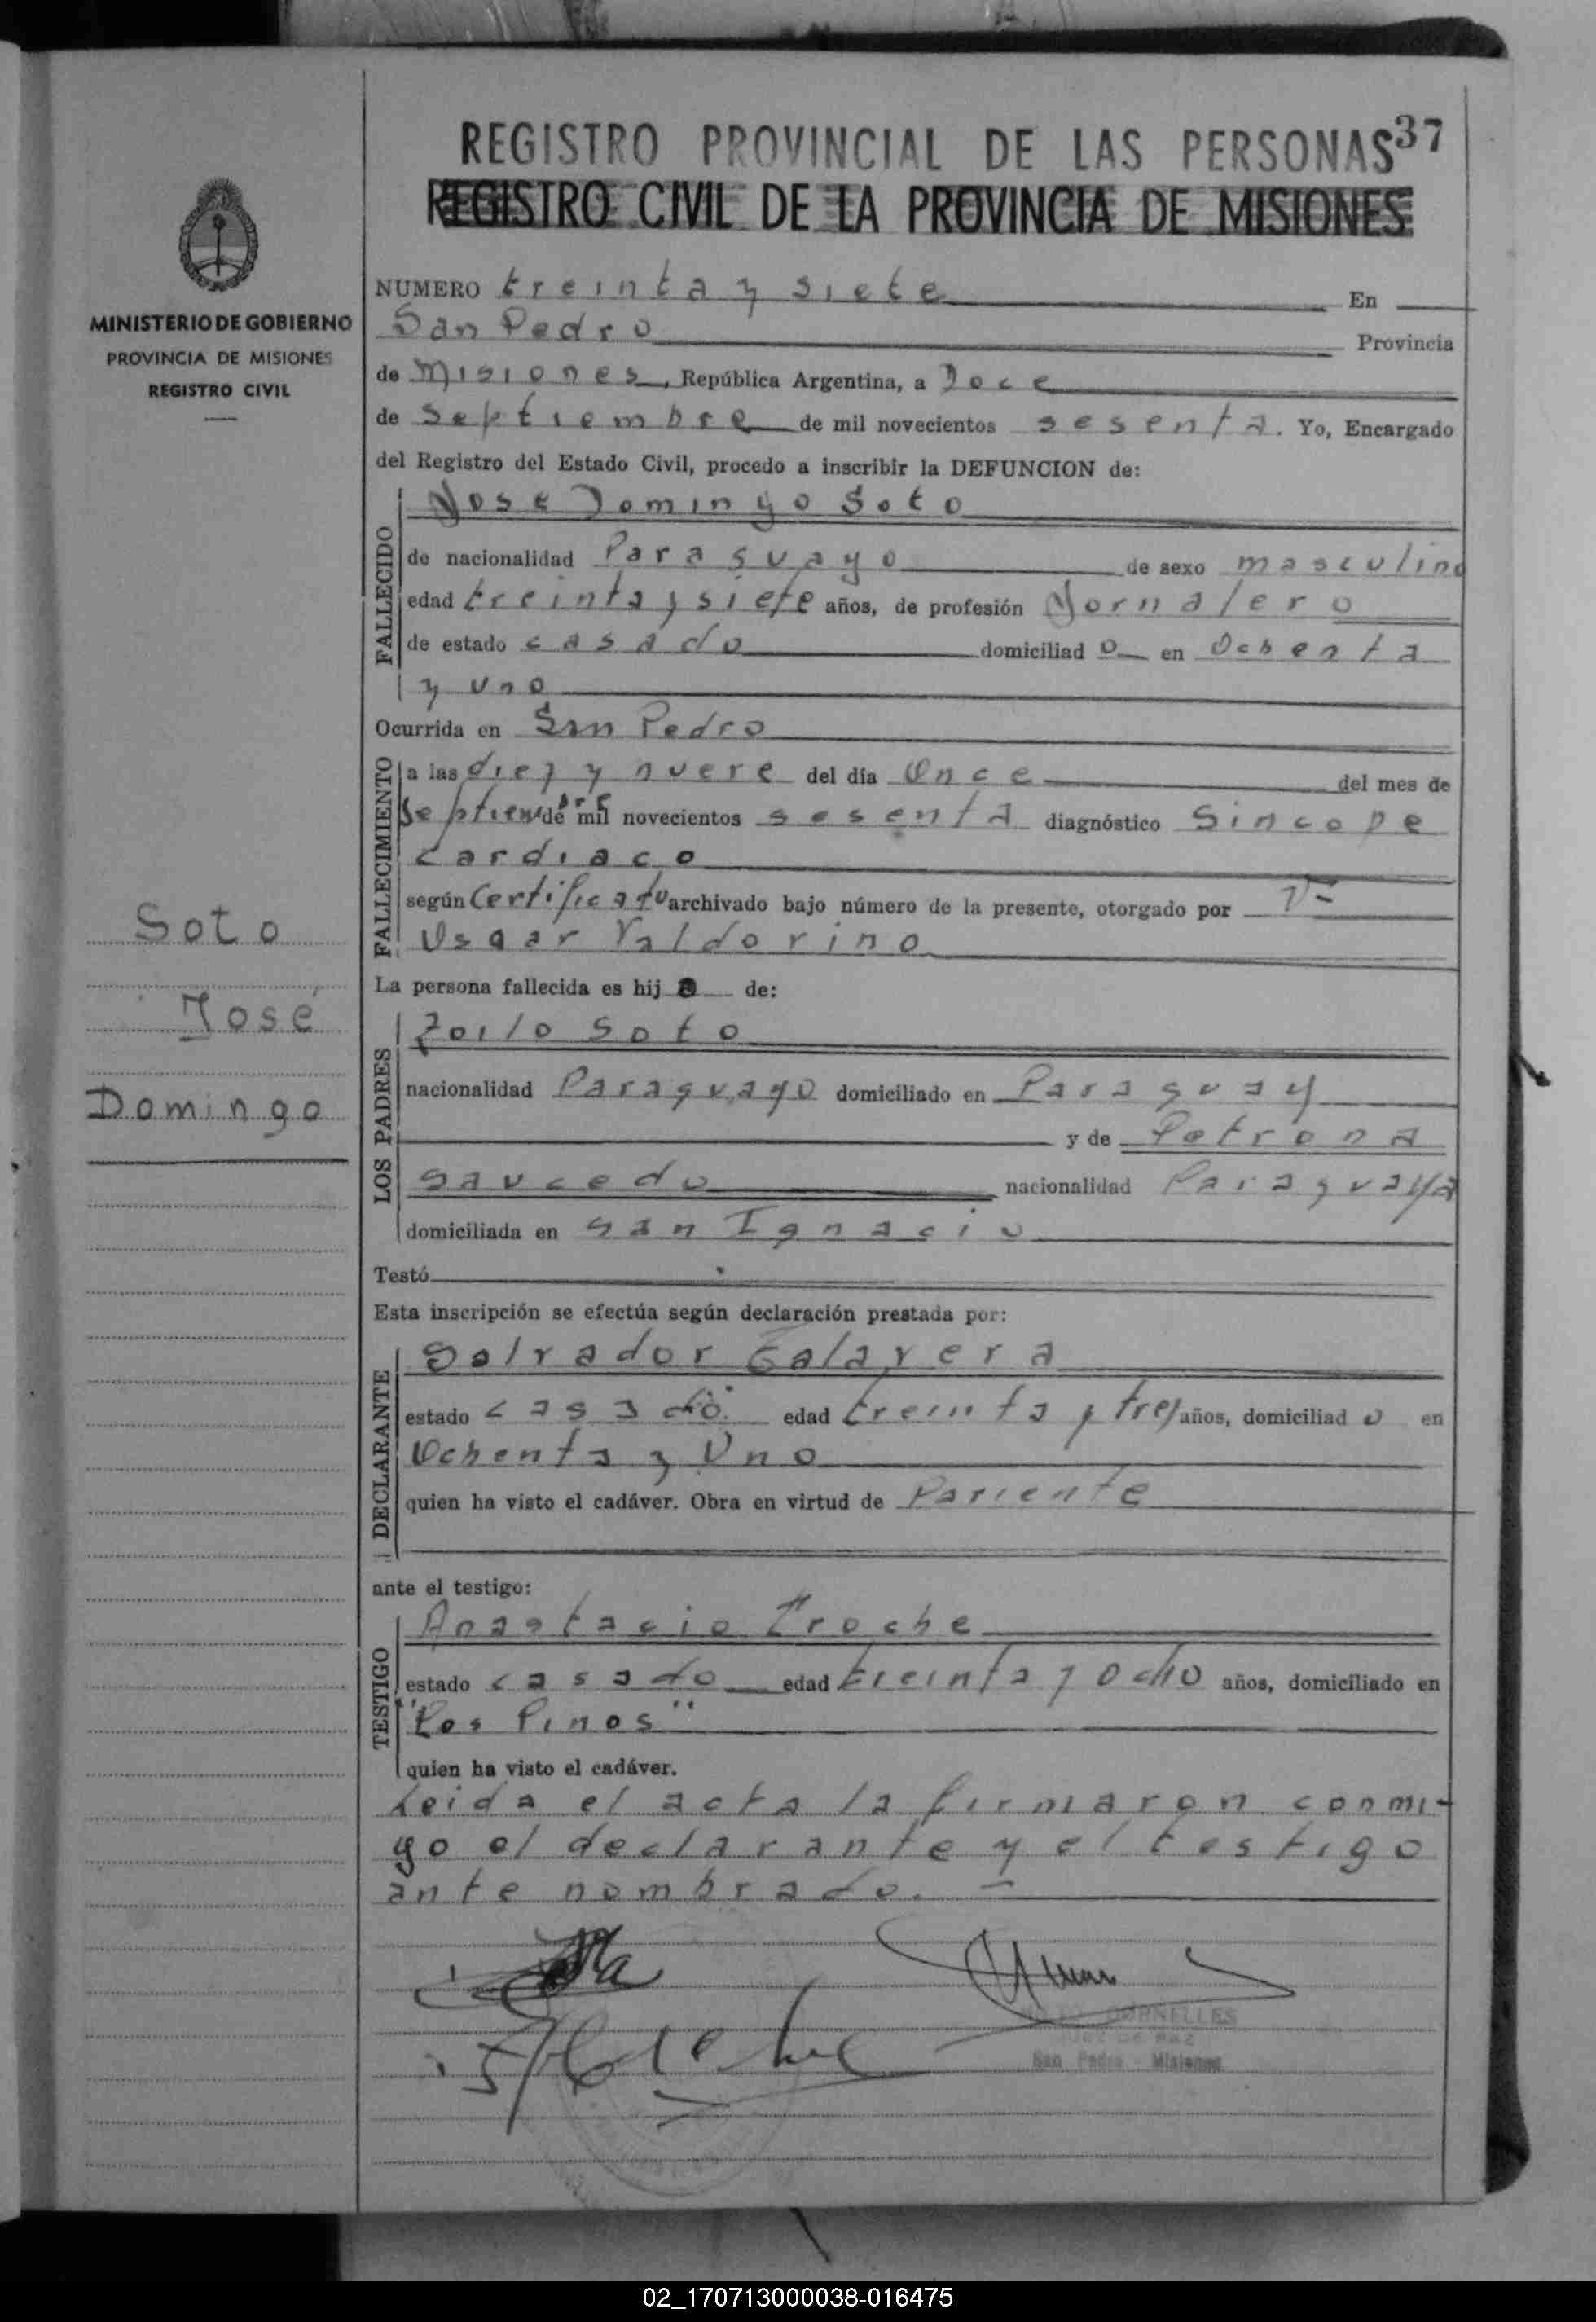 REGISTRO PROVINCIAL DE LAS PERSONAS 37
REGISTRO CIVIL DE LA PROVINCIA DE MISIONES
MINISTERIO DE GOBIERNO
PROVINCIA DE MISIONES
REGISTRO CIVIL
Soto
José
Domingo
NUMERO treinta y siete En
San Pedro Provincia
de Misiones, República Argentina, a Doce
de Septiembre de mil novecientos sesenta. Yo, Encargado
del Registro del Estado Civil, procedo a inscribir la DEFUNCION de:
FALLECIDO
Jose Domingo Soto
de nacionalidad Paraguayo de sexo masculino
edad treinta y siete años, de profesión Jornalero
de estado casado domiciliad o en Ochenta
y uno
Ocurrida en San Pedro
FALLECIMIENTO
a las diez y nueve del día Once del mes de
Septiembre de mil novecientos sesenta diagnóstico Sincope
cardiaco
según Certificado archivado bajo número de la presente, otorgado por
Valdorino
La persona fallecida es hij o de:
LOS PADRES
Zoilo Soto
nacionalidad Paraguayo domiciliado en Paraguay
y de Petrona
Saucedo nacionalidad Paraguaya
domiciliada en San Ignacio
Testó
Esta inscripción se efectúa según declaración prestada por:
DECLARANTE
Salvador Galavera
estado casado edad treinta y tres años, domiciliad o en
Ochenta y Uno
quien ha visto el cadáver. Obra en virtud de Pariente
ante el testigo:
TESTIGO
Anastacio Troche
estado casado edad treinta y ocho años, domiciliado en
"Los Pinos"
quien ha visto el cadáver.
Leida el acta la firmaron conmi-
go el declarante y el testigo
ante nombrado. -
ORNELLES
JUEZ DE PAZ
San Pedro - Misiones
02_170713000038-016475